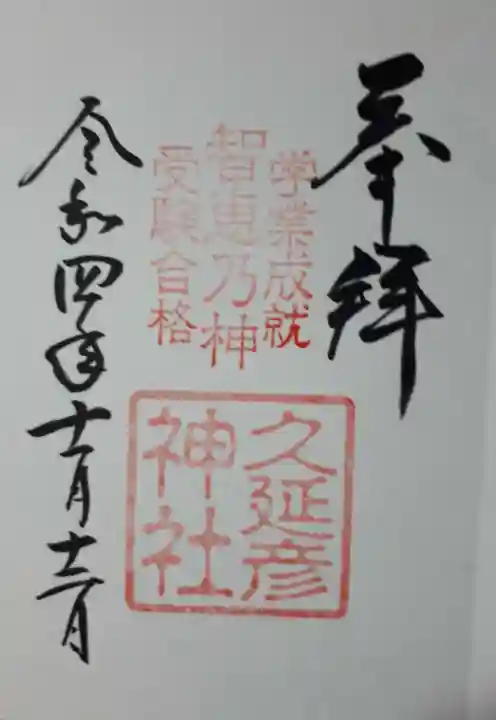 奉拝
学業成就
智恵乃神
受験合格
久延彦
神社
令和四年十一月十三日